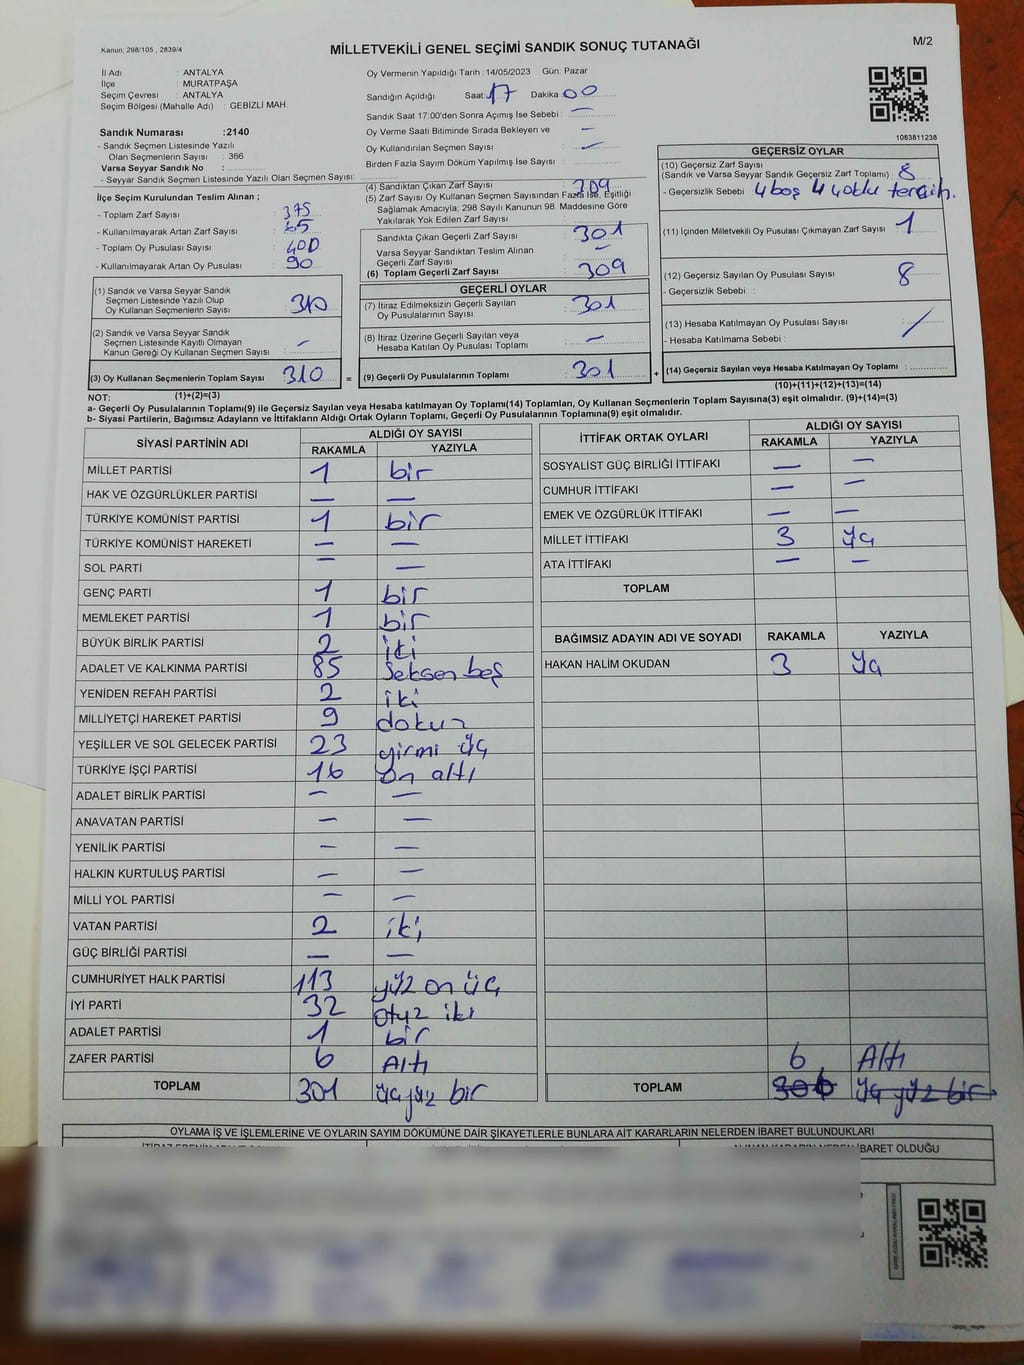 Kanun: 298/105 , 2839/4
MİLLETVEKİLİ GENEL SEÇİMİ SANDIK SONUÇ TUTANAĞI
M/2
İl Adı : ANTALYA
İlçe : MURATPAŞA
Seçim Çevresi : ANTALYA
Seçim Bölgesi (Mahalle Adı) : GEBİZLİ MAH.
Sandık Numarası :2140
- Sandık Seçmen Listesinde Yazılı
Olan Seçmenlerin Sayısı : 366
Varsa Seyyar Sandık No :
- Seyyar Sandık Seçmen Listesinde Yazılı Olan Seçmen Sayısı:
Oy Vermenin Yapıldığı Tarih : 14/05/2023 Gün: Pazar
Sandığın Açıldığı Saat: 17 Dakika 00
Sandık Saat 17:00'den Sonra Açımış İse Sebebi : —
Oy Verme Saati Bitiminde Sırada Bekleyen ve —
Oy Kullandırılan Seçmen Sayısı : —
Birden Fazla Sayım Döküm Yapılmış İse Sayısı :
1083811238
İlçe Seçim Kurulundan Teslim Alınan ;
- Toplam Zarf Sayısı : 375
- Kullanılmayarak Artan Zarf Sayısı : 65
- Toplam Oy Pusulası Sayısı : 400
- Kullanılmayarak Artan Oy Pusulası : 90
(1) Sandık ve Varsa Seyyar Sandık
Seçmen Listesinde Yazılı Olup
Oy Kullanan Seçmenlerin Sayısı : 310
(2) Sandık ve Varsa Seyyar Sandık
Seçmen Listesinde Kayıtlı Olmayan
Kanun Gereği Oy Kullanan Seçmen Sayısı : —
(3) Oy Kullanan Seçmenlerin Toplam Sayısı : 310 =
(1)+(2)=(3)
(4) Sandıktan Çıkan Zarf Sayısı : 309
(5) Zarf Sayısı Oy Kullanan Seçmen Sayısından Fazla İse, Eşitliği
Sağlamak Amacıyla; 298 Sayılı Kanunun 98. Maddesine Göre
Yakılarak Yok Edilen Zarf Sayısı :
Sandıkta Çıkan Geçerli Zarf Sayısı : 301
Varsa Seyyar Sandıktan Teslim Alınan
Geçerli Zarf Sayısı : —
(6) Toplam Geçerli Zarf Sayısı : 309
GEÇERLİ OYLAR
(7) İtiraz Edilmeksizin Geçerli Sayılan
Oy Pusulalarının Sayısı : 301
(8) İtiraz Üzerine Geçerli Sayılan veya
Hesaba Katılan Oy Pusulası Toplamı : —
(9) Geçerli Oy Pusulalarının Toplamı : 301 +
GEÇERSİZ OYLAR
(10) Geçersiz Zarf Sayısı
(Sandık ve Varsa Seyyar Sandık Geçersiz Zarf Toplamı) : 8
- Geçersizlik Sebebi : 4 boş 4 çoklu tercih.
(11) İçinden Milletvekili Oy Pusulası Çıkmayan Zarf Sayısı : 1
(12) Geçersiz Sayılan Oy Pusulası Sayısı : 8
- Geçersizlik Sebebi :
(13) Hesaba Katılmayan Oy Pusulası Sayısı : /
- Hesaba Katılmama Sebebi :
(14) Geçersiz Sayılan veya Hesaba Katılmayan Oy Toplamı :
(10)+(11)+(12)+(13)=(14)
NOT:
a- Geçerli Oy Pusulalarının Toplamı(9) ile Geçersiz Sayılan veya Hesaba katılmayan Oy Toplamı(14) Toplamları, Oy Kullanan Seçmenlerin Toplam Sayısına(3) eşit olmalıdır. (9)+(14)=(3)
b- Siyasi Partilerin, Bağımsız Adayların ve İttifakların Aldığı Ortak Oyların Toplamı, Geçerli Oy Pusulalarının Toplamına(9) eşit olmalıdır.
SİYASİ PARTİNİN ADI ALDIĞI OY SAYISI
RAKAMLA YAZIYLA
MİLLET PARTİSİ 1 bir
HAK VE ÖZGÜRLÜKLER PARTİSİ — —
TÜRKİYE KOMÜNİST PARTİSİ 1 bir
TÜRKİYE KOMÜNİST HAREKETİ — —
SOL PARTİ — —
GENÇ PARTİ 1 bir
MEMLEKET PARTİSİ 1 bir
BÜYÜK BİRLİK PARTİSİ 2 iki
ADALET VE KALKINMA PARTİSİ 85 Seksen beş
YENİDEN REFAH PARTİSİ 2 iki
MİLLİYETÇİ HAREKET PARTİSİ 9 dokuz
YEŞİLLER VE SOL GELECEK PARTİSİ 23 yirmi üç
TÜRKİYE İŞÇİ PARTİSİ 16 on altı
ADALET BİRLİK PARTİSİ — —
ANAVATAN PARTİSİ — —
YENİLİK PARTİSİ — —
HALKIN KURTULUŞ PARTİSİ — —
MİLLİ YOL PARTİSİ — —
VATAN PARTİSİ 2 iki
GÜÇ BİRLİĞİ PARTİSİ — —
CUMHURİYET HALK PARTİSİ 113 yüz on üç
İYİ PARTİ 32 otuz iki
ADALET PARTİSİ 1 bir
ZAFER PARTİSİ 6 Altı
TOPLAM 301 üç yüz bir
İTTİFAK ORTAK OYLARI ALDIĞI OY SAYISI
RAKAMLA YAZIYLA
SOSYALİST GÜÇ BİRLİĞİ İTTİFAKI — —
CUMHUR İTTİFAKI — —
EMEK VE ÖZGÜRLÜK İTTİFAKI — —
MİLLET İTTİFAKI 3 üç
ATA İTTİFAKI — —
TOPLAM
BAĞIMSIZ ADAYIN ADI VE SOYADI RAKAMLA YAZIYLA
HAKAN HALİM OKUDAN 3 üç
6 Altı
TOPLAM üç yüz bir
OYLAMA İŞ VE İŞLEMLERİNE VE OYLARIN SAYIM DÖKÜMÜNE DAİR ŞİKAYETLERLE BUNLARA AİT KARARLARIN NELERDEN İBARET BULUNDUKLARI
İBARET OLDUĞU